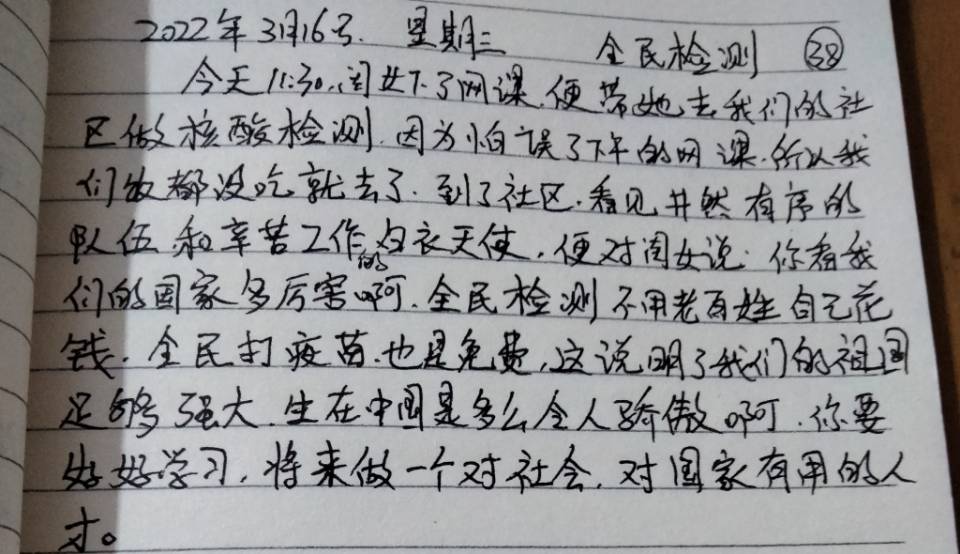 2022年3月16号. 星期三 全民检测 ㊳
今天11:30,闺女下了网课,便带她去我们的社
区做核酸检测.因为怕误了下午的网课.所以我
们饭都没吃就去了.到了社区.看见井然有序的
队伍和辛苦工作的白衣天使,便对闺女说:你看我
们的国家多厉害啊.全民检测不用老百姓自己花
钱.全民打疫苗.也是免费,这说明了我们的祖国
足够强大.生在中国是多么令人骄傲啊.你要
好好学习,将来做一个对社会.对国家有用的人
才。